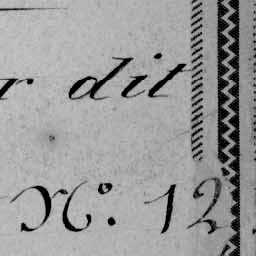 r dit
N°. 12